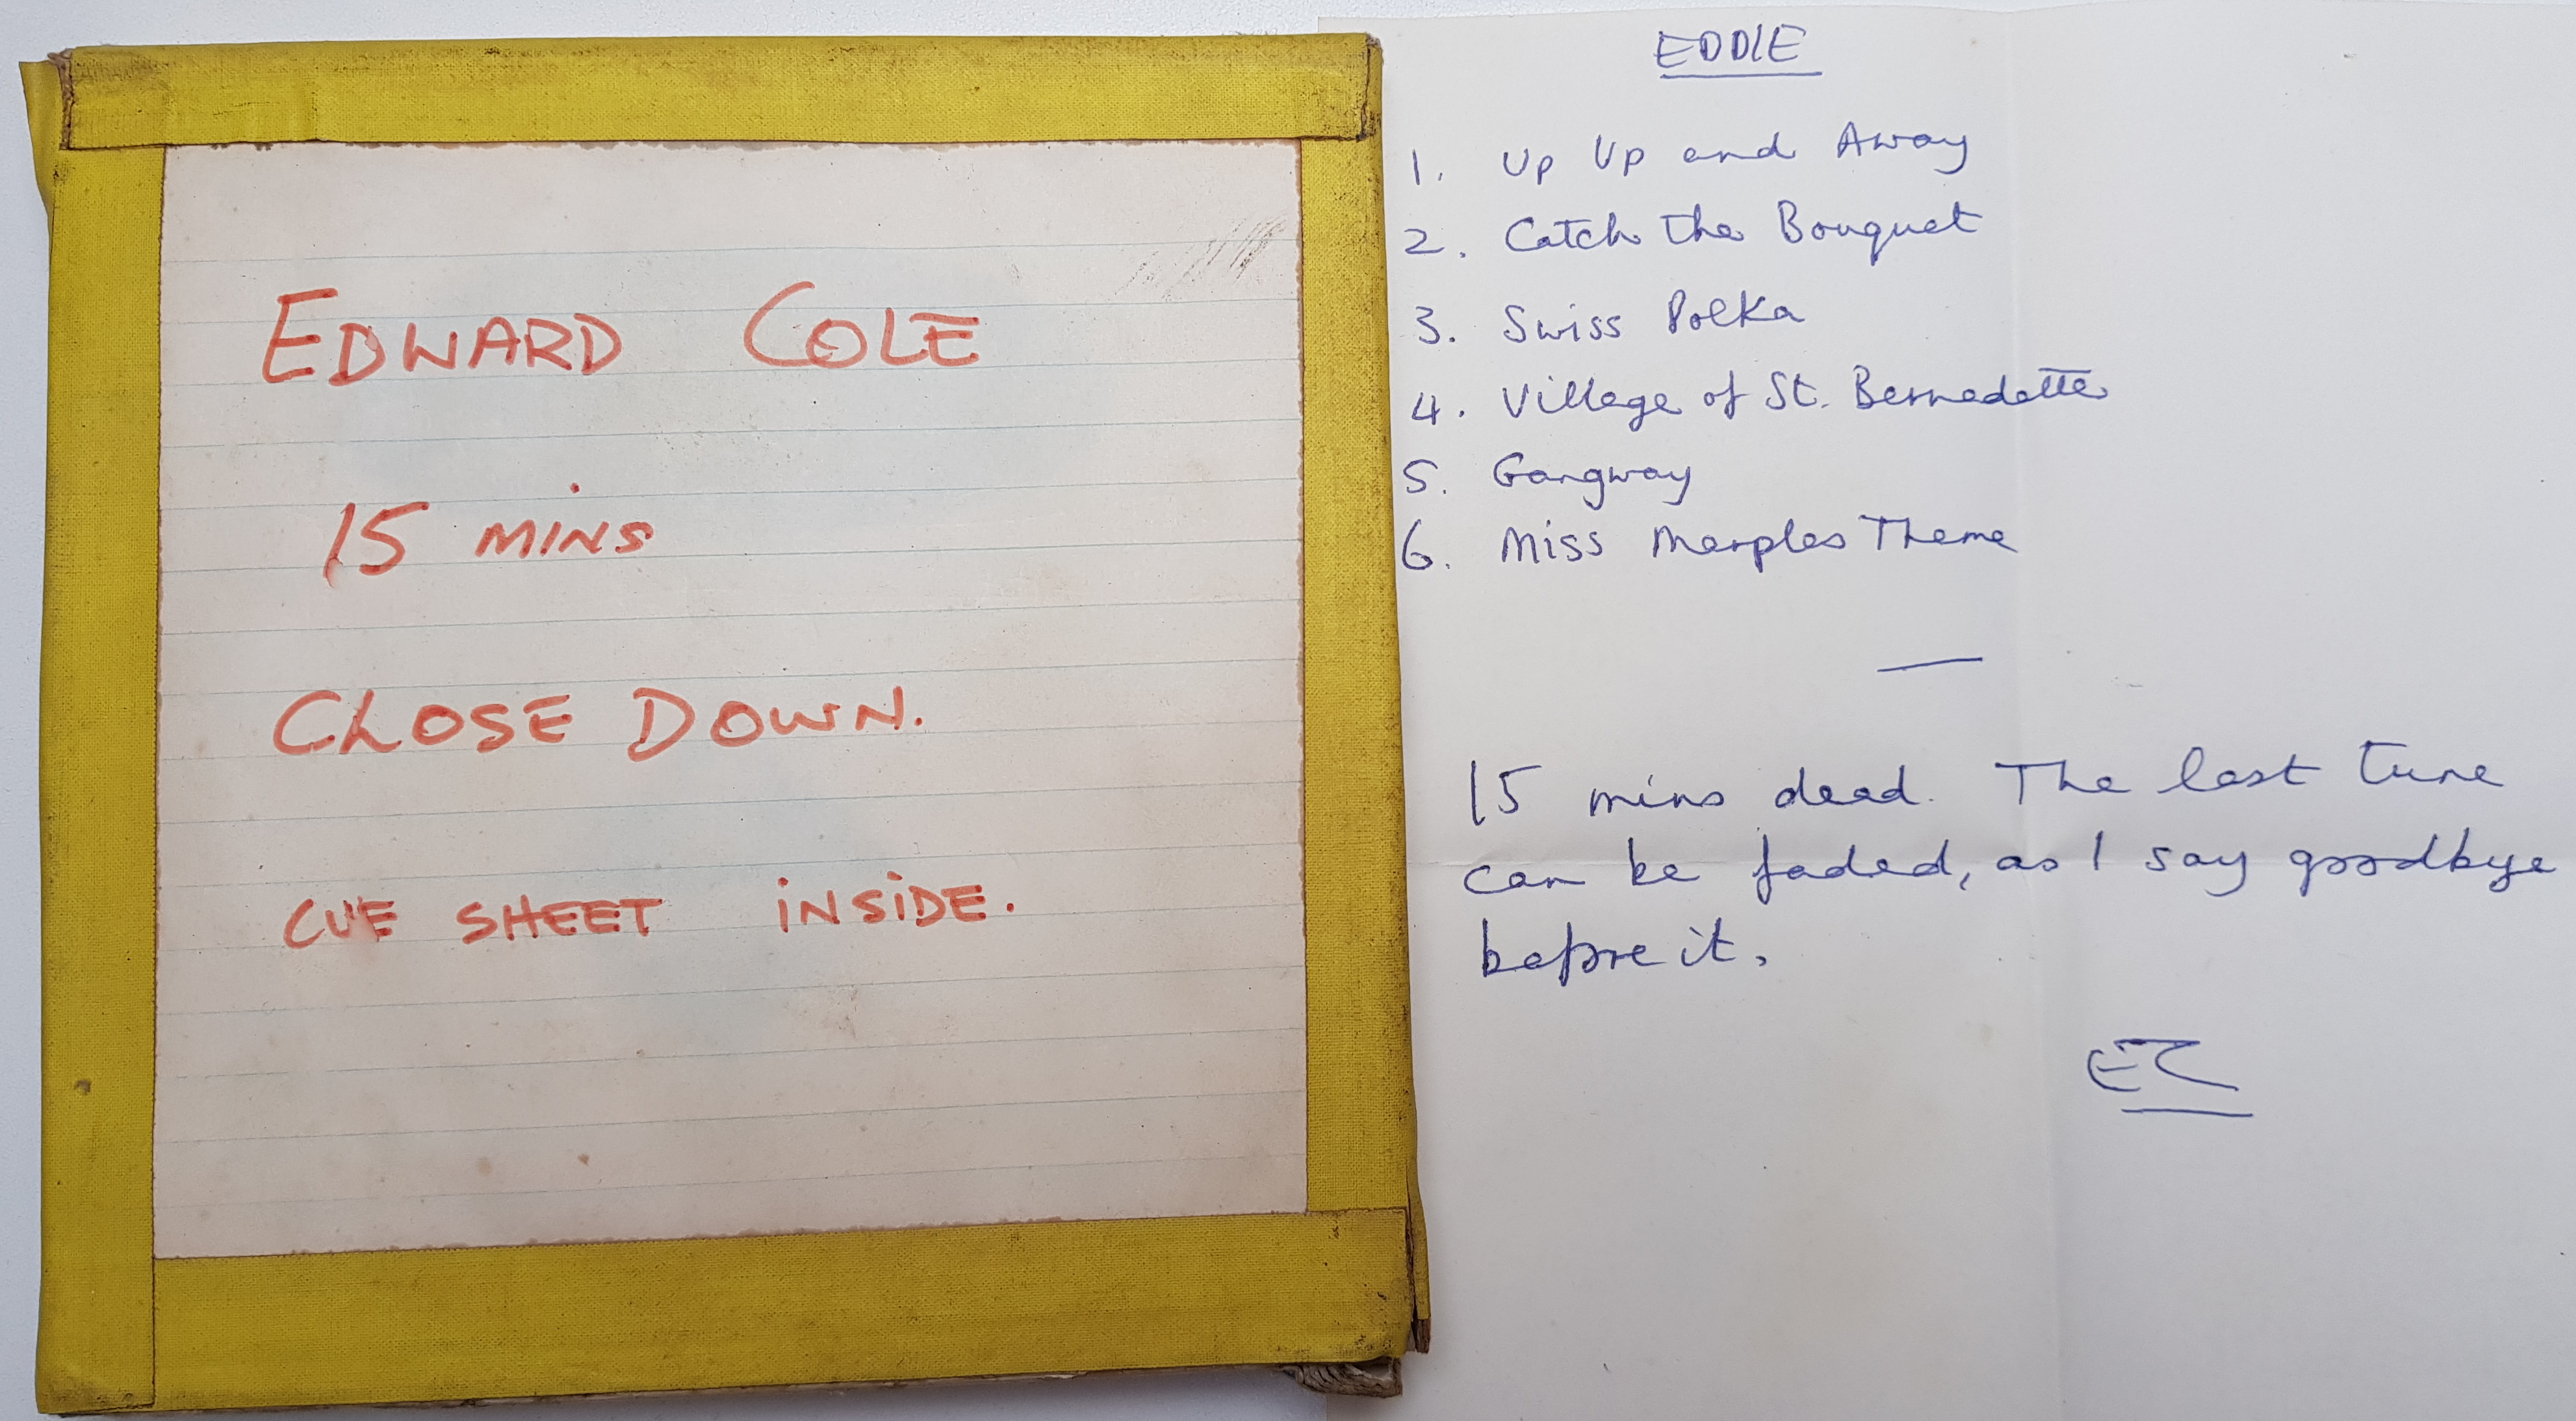 EDWARD COLE
15 MINS
CLOSE DOWN.
CUE SHEET INSIDE.
EDDIE
1. Up Up and Away
2. Catch the Bouquet
3. Swiss Polka
4. Village of St. Bernadette
5. Gangway
6. Miss Marples Theme
15 mins dead. The last tune
can be faded, as I say goodbye
before it.
EC